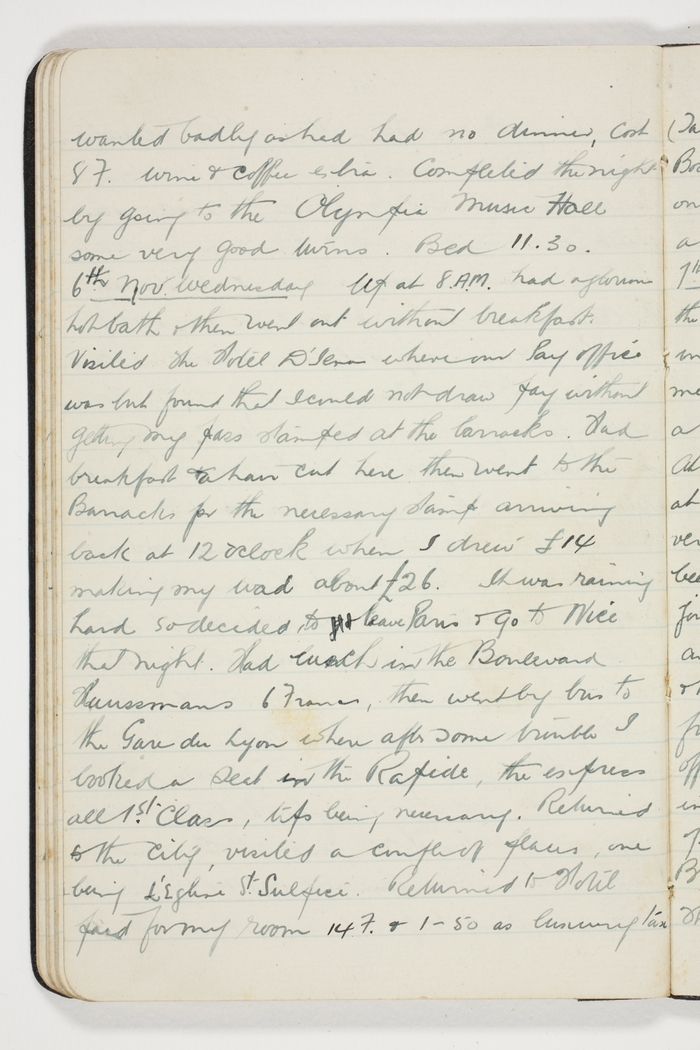 wanted badly as had had no dinner, cost
8 F. wine & coffee extra. Completed the night
by going to the Olympia Music Hall
some very good turns. Bed 11.30.
6th Nov. Wednesday Up at 8 A.M. had a glorious
hot bath & then went out without breakfast.
Visited the Hotel D'Iena where our Pay office
was but found that I could not draw pay without
getting my pass stamped at the barracks. Had
breakfast & a hair cut here then went to the
Barracks for the necessary stamp arriving
back at 12 oclock when I drew £14
making my wad about £26. It was raining
hard so decided to leave Paris & go to Nice
that night. Had lunch in the Boulevard
Haussmans 6 Francs, then went by bus to
the Gare du Lyon where after some trouble I
booked a seat in the Rapide, the express
all 1st Class, tips being necessary. Returned
to the City, visited a couple of places, one
being L'Eglise St. Sulpice. Returned to Hotel
paid for my room 14 F. & 1-50 as luxury tax
(Ta
Bo
on
a
7th
the
in
me
a
at
ver
bee
a